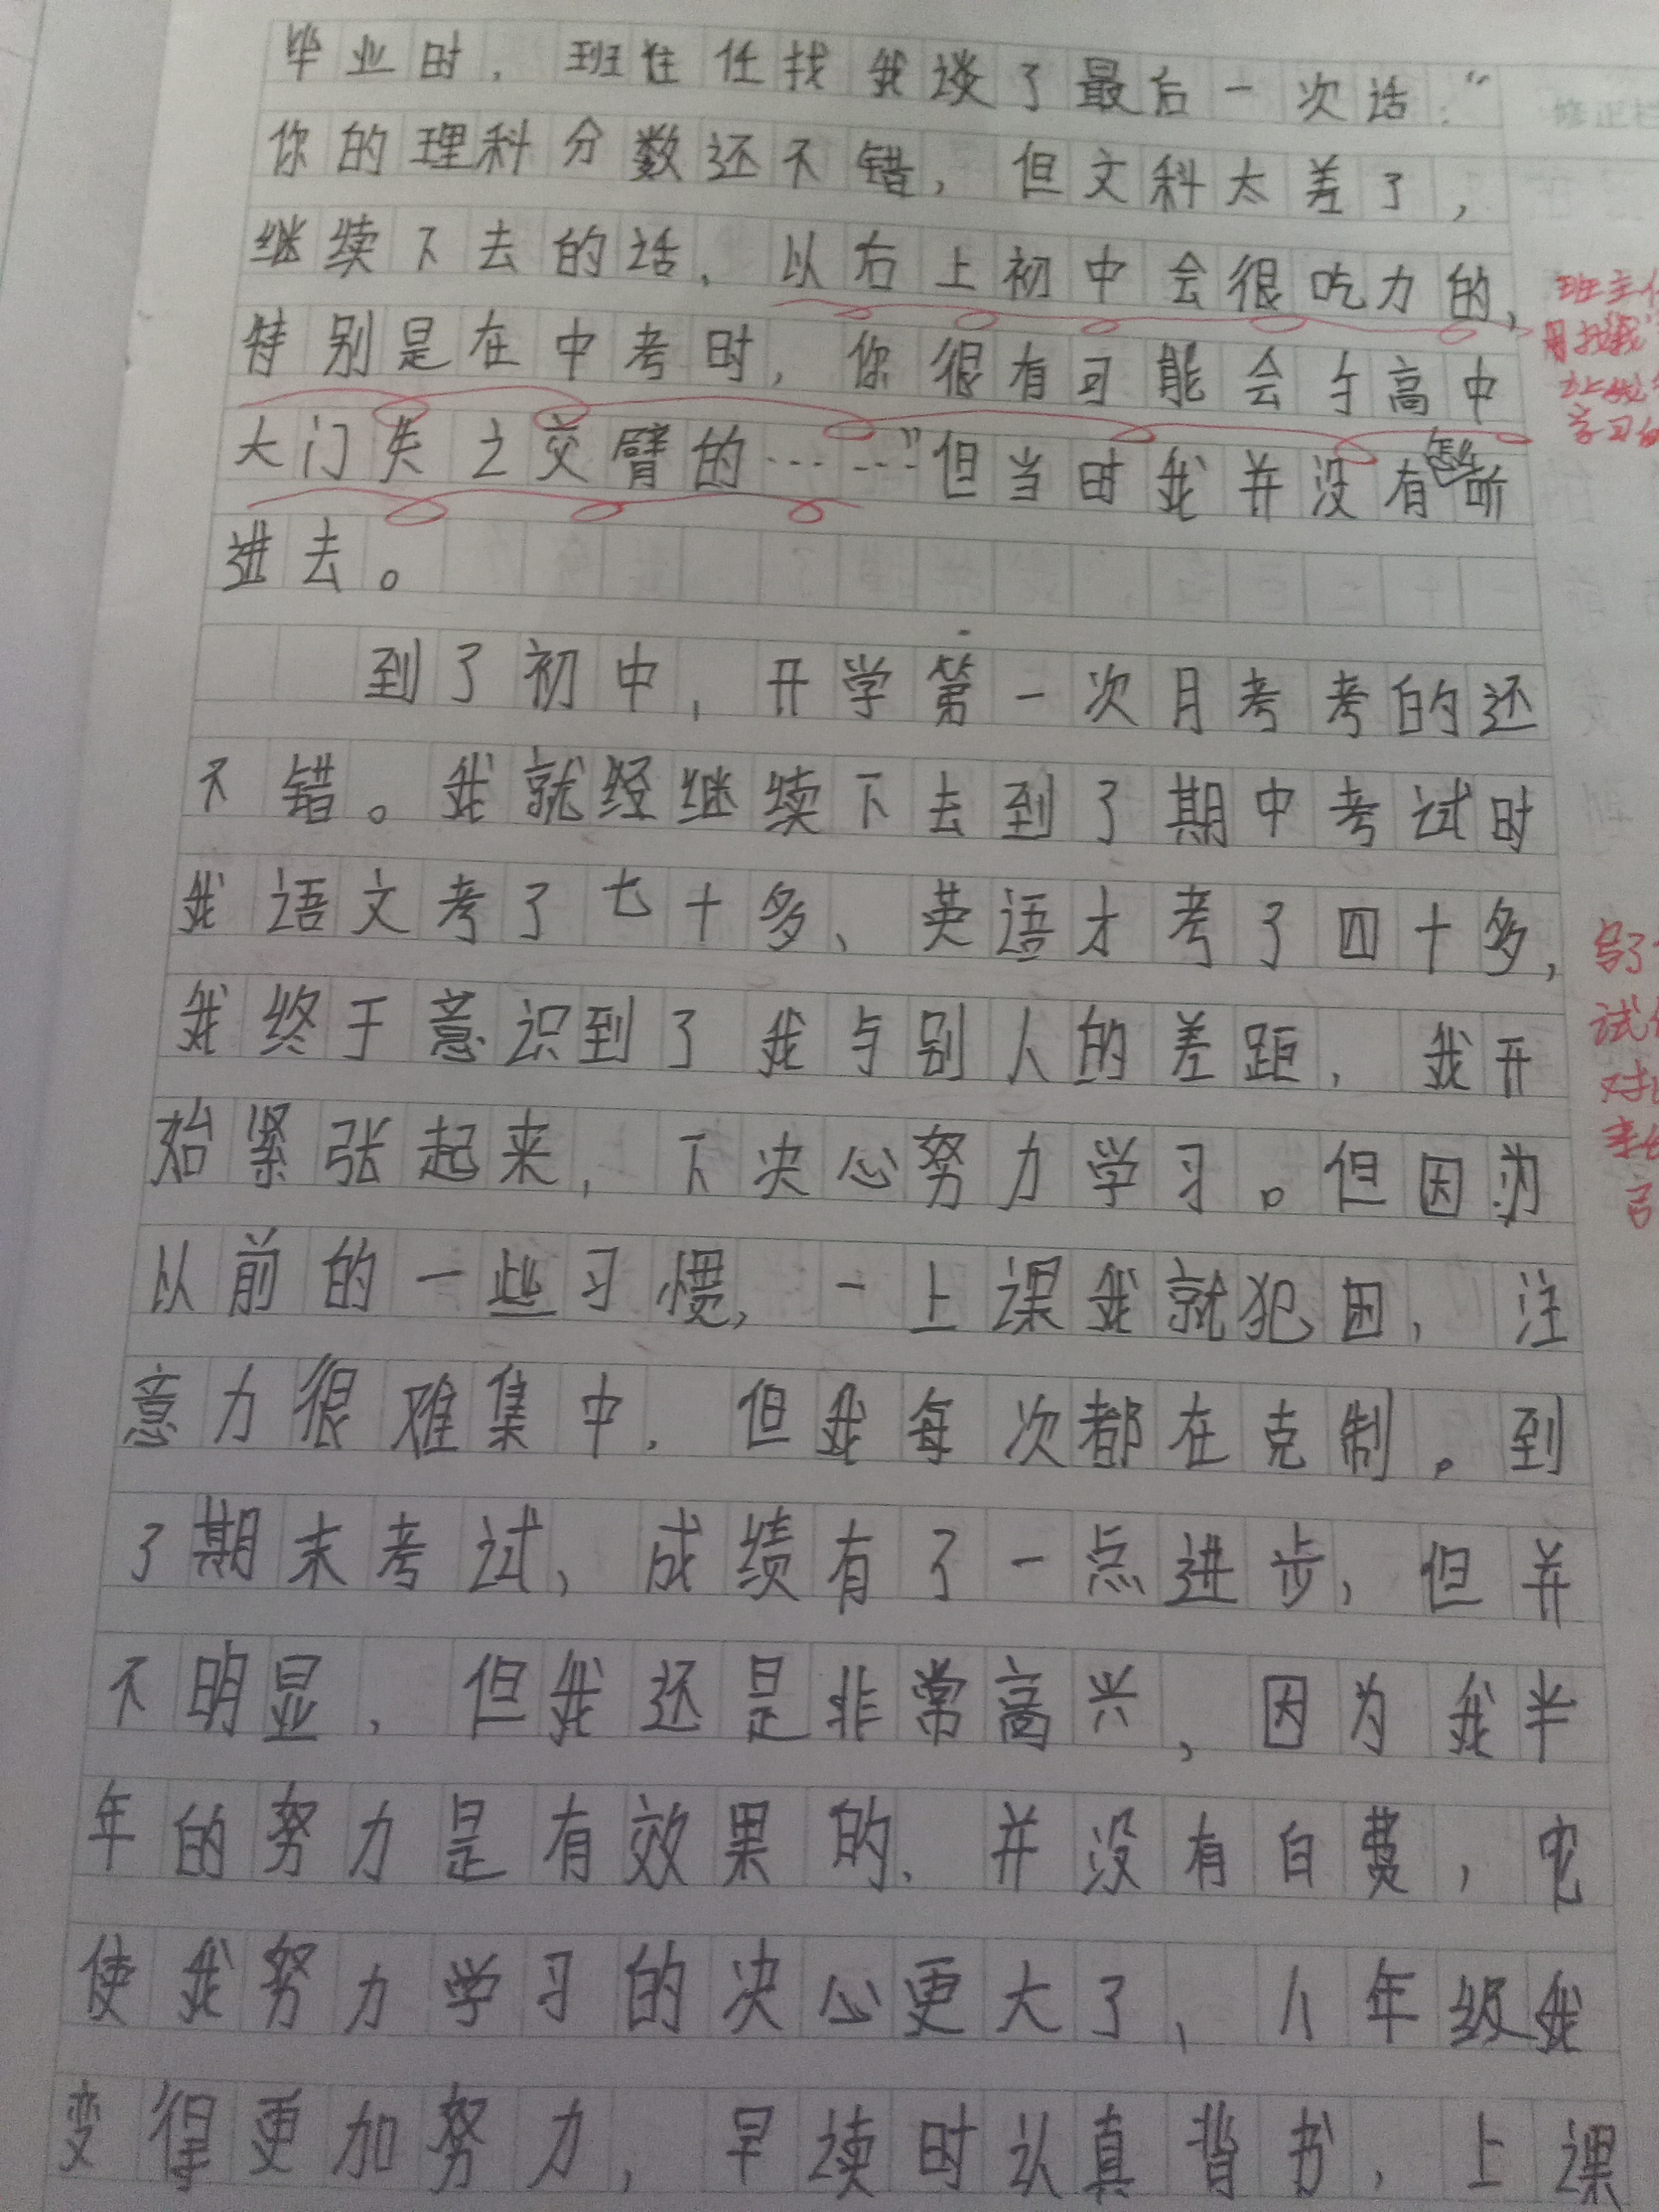 毕业时，班住任找我谈了最后一次话：“
你的理科分数还不错，但文科太差了，
继续下去的话，以右上初中会很吃力的，
特别是在中考时，你很有可能会与高中
大门失之交臂的……”但当时我并没有听
进去。
到了初中，开学第一次月考考的还
不错。我就经继续下去到了期中考试时
我语文考了七十多、英语才考了四十多，
我终于意识到了我与别人的差距，我开
始紧张起来，下决心努力学习。但因为
以前的一些习惯，一上课我就犯困，注
意力很难集中，但我每次都在克制。到
了期末考试，成绩有了一点进步，但并
不明显，但我还是非常高兴，因为我半
年的努力是有效果的，并没有白费，它
使我努力学习的决心更大了，八年级我
变得更加努力，早读时认真背书，上课
修正栏
班主
学习
试
对